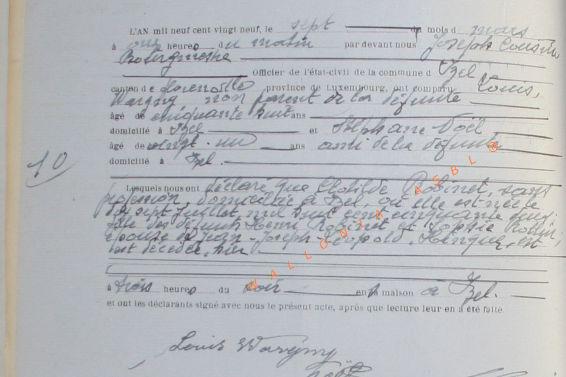 L'AN mil neuf cent vingt neuf, le sept du mois d mars
à onze heures du matin par devant nous Joseph Cousin
Bourgmestre
Officier de l'état-civil de la commune d Izel
canton de Florenville province de Luxembourg, ont comparu Louis,
Wavgny non parent de la défunte
âgé de cinquante huit ans
domicilié à Izel et Stéphane Noël,
âgé de vingt-un ans ami de la défunte
domicilié à Izel.
10
Lesquels nous ont déclaré que Clotilde Robinet, sans
profession, domiciliée à Izel, où elle est née le
dix sept juillet, mil huit cent cinquante
fille des défunts Henri Robinet, et Sophie
épouse de Jean-Joseph-Léopold, est
est décédée, hier
à trois heures du soir en sa maison à Izel.
et ont les déclarants signé avec nous le présent acte, après que lecture leur en a été faite
WALLONIA ASBL ©
Louis Wavgny
Noël